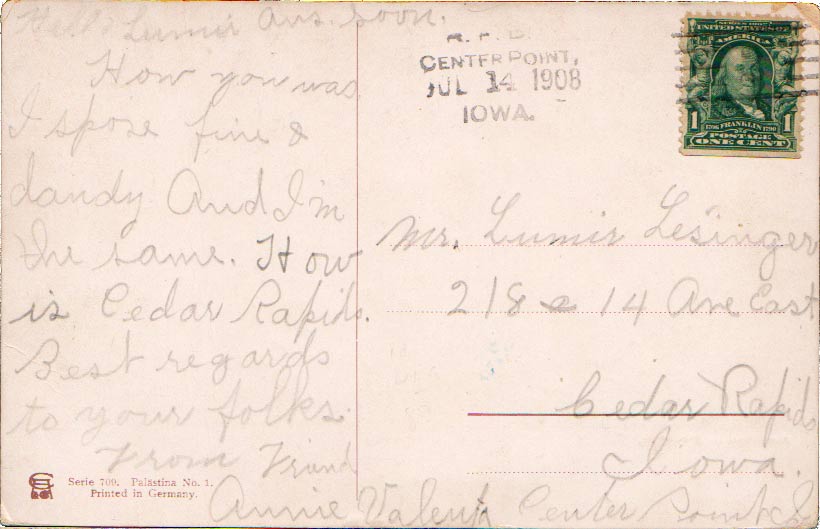 Hello Lumir Ans. soon.
How you was
I spose fine &
dandy And I'm
the same. How
is Cedar Rapids.
Best regards
to your folks.
From Friend
Annie Center Point
Serie 709. Palästina No. 1.
Printed in Germany.
R. F. D.
CENTER POINT,
JUL 14 1908
IOWA.
SERIES 1902
UNITED STATES OF
AMERICA
1 1706 FRANKLIN 1790 1
POSTAGE
ONE CENT
Mr. Lumir Lesinger
218 14 Ave East
Cedar Rapids
Iowa.